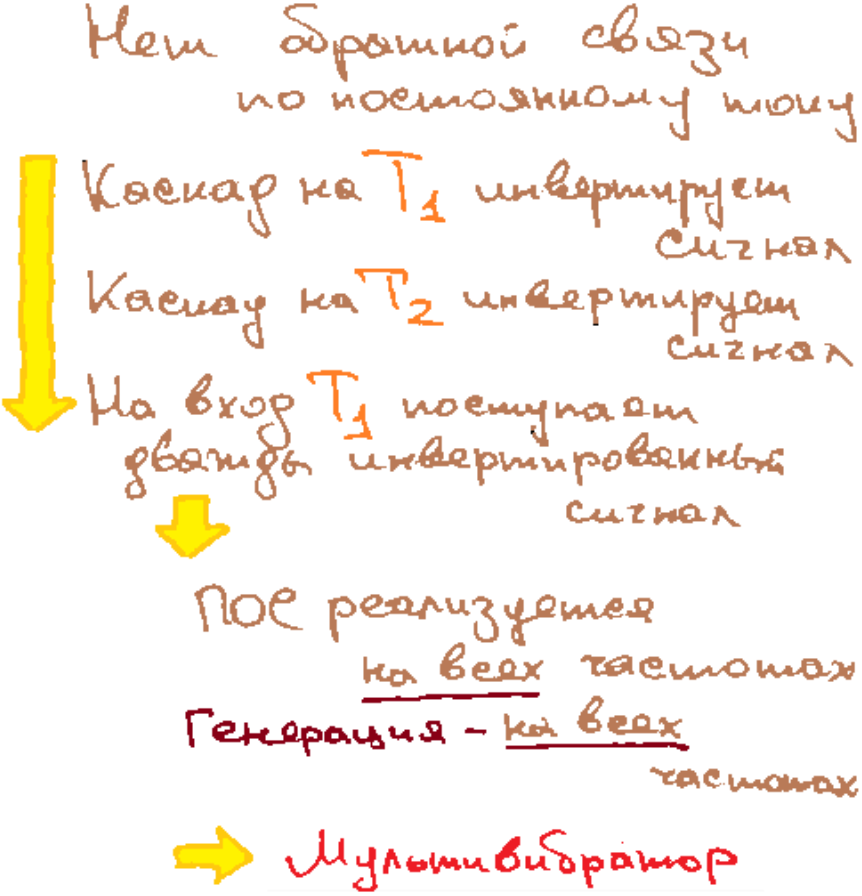 Нет обратной связи
по постоянному току
Каскад на T1 инвертирует
сигнал
Каскад на T2 инвертирует
сигнал
На вход T1 поступает
дважды инвертированный
сигнал
ПОС реализуется
на всех частотах
Генерация - на всех
частотах
Мультивибратор